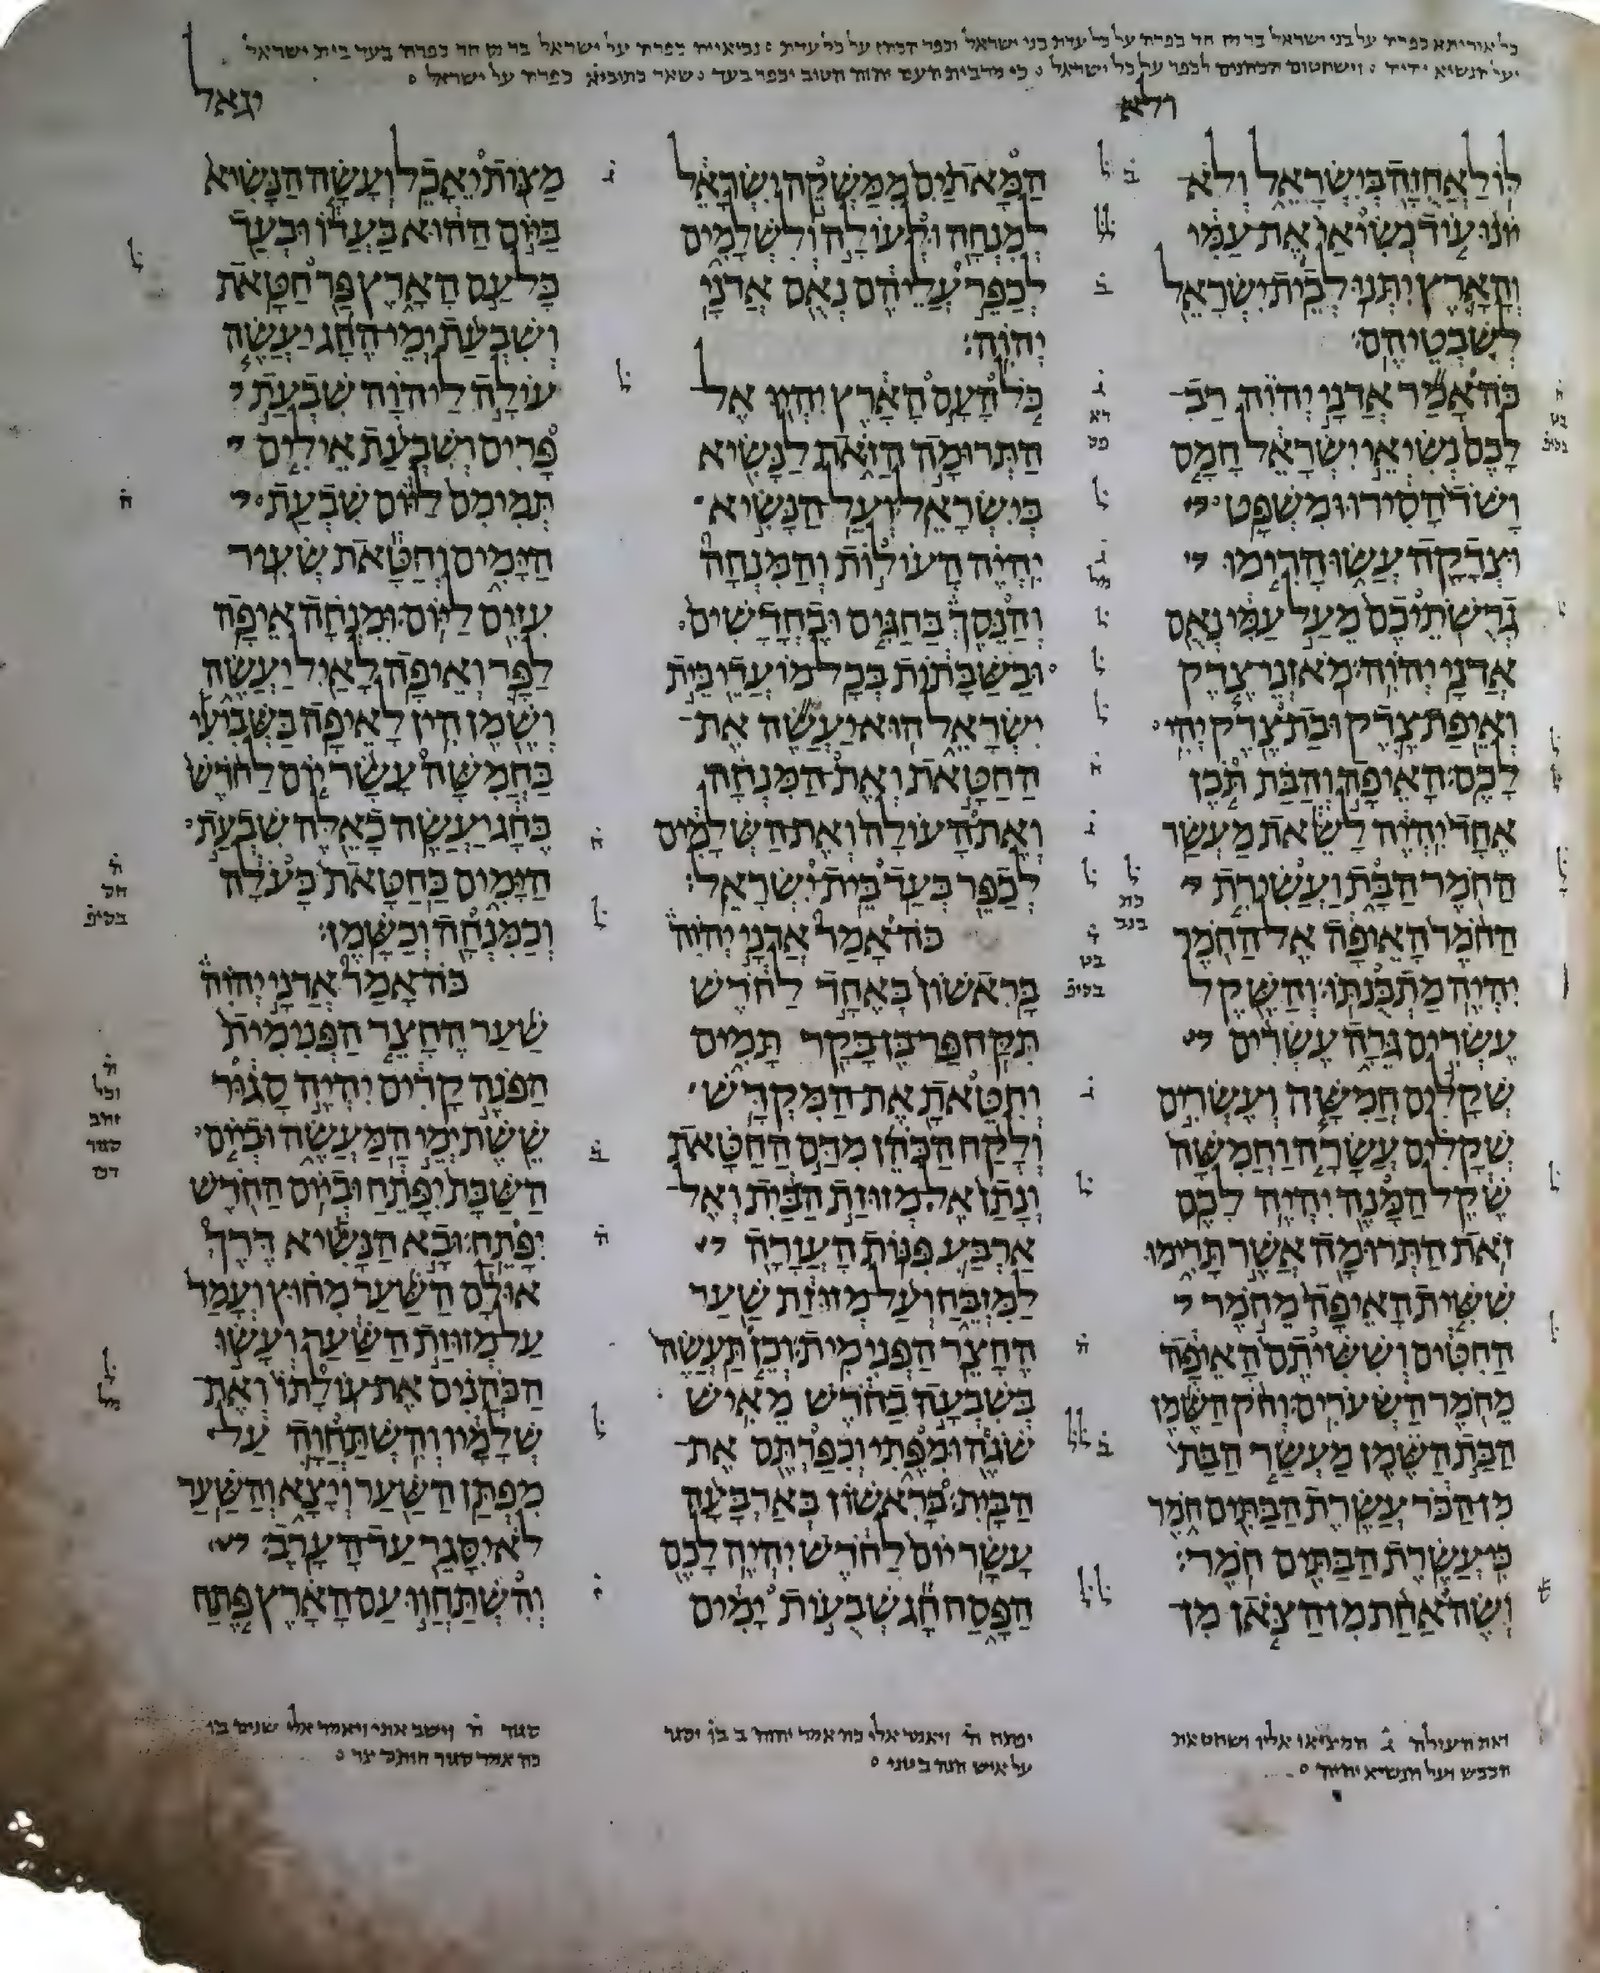 כל אוריתא כפרה על בני ישראל בר מן חד כפרה על כל עדת בני ישראל וכפר הכהן על כל עדת ׃ נביאייה כפרה על ישראל בר מן חד כפרה בעד בית ישראל
ועל הנשיא יהיה ׃ וישחטום הכהנים לכפר על כל ישראל ׃ כי מרבית העם יהוה הטוב יכפר בעד ׃ שאר כתוביא כפרה על ישראל ׃
ולא
יגאל
לוֹ לַאֲחֻזָּה בְּיִשְׂרָאֵל וְלֹא־
יוֹנוּ עוֹד נְשִׂיאַי אֶת עַמִּי
וְהָאָרֶץ יִתְּנוּ לְבֵית יִשְׂרָאֵל
לְשִׁבְטֵיהֶם׃
כֹּה אָמַר אֲדֹנָי יְהוִה רַב־
לָכֶם נְשִׂיאֵי יִשְׂרָאֵל חָמָס
וָשֹׁד הָסִירוּ וּמִשְׁפָּט
וּצְדָקָה עֲשׂוּ הָרִימוּ
גְרֻשֹׁתֵיכֶם מֵעַל עַמִּי נְאֻם
אֲדֹנָי יְהוִה׃ מֹאזְנֵי צֶדֶק
וְאֵיפַת צֶדֶק וּבַת צֶדֶק יְהִי
לָכֶם׃ הָאֵיפָה וְהַבַּת תֹּכֶן
אֶחָד יִהְיֶה לָשֵׂאת מַעְשַׂר
הַחֹמֶר הַבָּת וַעֲשִׂירִת
הַחֹמֶר הָאֵיפָה אֶל הַחֹמֶר
יִהְיֶה מַתְכֻּנְתּוֹ׃ וְהַשֶּׁקֶל
עֶשְׂרִים גֵּרָה עֶשְׂרִים
שְׁקָלִים חֲמִשָּׁה וְעֶשְׂרִים
שְׁקָלִים עֲשָׂרָה וַחֲמִשָּׁה
שֶׁקֶל הַמָּנֶה יִהְיֶה לָכֶם׃
זֹאת הַתְּרוּמָה אֲשֶׁר תָּרִימוּ
שִׁשִּׁית הָאֵיפָה מֵחֹמֶר
הַחִטִּים וְשִׁשִּׁיתֶם הָאֵיפָה
מֵחֹמֶר הַשְּׂעֹרִים׃ וְחֹק הַשֶּׁמֶן
הַבַּת הַשֶּׁמֶן מַעְשַׂר הַבַּת
מִן הַכֹּר עֲשֶׂרֶת הַבַּתִּים חֹמֶר
כִּי עֲשֶׂרֶת הַבַּתִּים חֹמֶר׃
וְשֶׂה אַחַת מִן הַצֹּאן מִן־
הַמָּאתַיִם מִמַּשְׁקֵה יִשְׂרָאֵל
לְמִנְחָה וּלְעוֹלָה וְלִשְׁלָמִים
לְכַפֵּר עֲלֵיהֶם נְאֻם אֲדֹנָי
יְהוִה׃
כֹּל הָעָם הָאָרֶץ יִהְיוּ אֶל־
הַתְּרוּמָה הַזֹּאת לַנָּשִׂיא
בְּיִשְׂרָאֵל׃ וְעַל הַנָּשִׂיא
יִהְיֶה הָעוֹלוֹת וְהַמִּנְחָה
וְהַנֵּסֶךְ בַּחַגִּים וּבֶחֳדָשִׁים
וּבַשַּׁבָּתוֹת בְּכָל מוֹעֲדֵי בֵּית
יִשְׂרָאֵל הוּא יַעֲשֶׂה אֶת־
הַחַטָּאת וְאֶת הַמִּנְחָה
וְאֶת הָעוֹלָה וְאֶת הַשְּׁלָמִים
לְכַפֵּר בְּעַד בֵּית יִשְׂרָאֵל׃
כֹּה אָמַר אֲדֹנָי יְהוִה
בָּרִאשׁוֹן בְּאֶחָד לַחֹדֶשׁ
תִּקַּח פַּר בֶּן בָּקָר תָּמִים
וְחִטֵּאתָ אֶת הַמִּקְדָּשׁ׃
וְלָקַח הַכֹּהֵן מִדַּם הַחַטָּאת
וְנָתַן אֶל מְזוּזַת הַבַּיִת וְאֶל־
אַרְבַּע פִּנּוֹת הָעֲזָרָה
לַמִּזְבֵּחַ וְעַל מְזוּזַת שַׁעַר
הֶחָצֵר הַפְּנִימִית׃ וְכֵן תַּעֲשֶׂה
בְּשִׁבְעָה בַחֹדֶשׁ מֵאִישׁ
שֹׁגֶה וּמִפֶּתִי וְכִפַּרְתֶּם אֶת־
הַבָּיִת׃ בָּרִאשׁוֹן בְּאַרְבָּעָה
עָשָׂר יוֹם לַחֹדֶשׁ יִהְיֶה לָכֶם
הַפָּסַח חָג שְׁבֻעוֹת יָמִים
מַצּוֹת יֵאָכֵל׃ וְעָשָׂה הַנָּשִׂיא
בַּיּוֹם הַהוּא בַּעֲדוֹ וּבְעַד
כָּל עַם הָאָרֶץ פַּר חַטָּאת׃
וְשִׁבְעַת יְמֵי הֶחָג יַעֲשֶׂה
עוֹלָה לַיהוָה שִׁבְעַת
פָּרִים וְשִׁבְעַת אֵילִים
תְּמִימִם לַיּוֹם שִׁבְעַת
הַיָּמִים וְחַטָּאת שְׂעִיר
עִזִּים לַיּוֹם׃ וּמִנְחָה אֵיפָה
לַפָּר וְאֵיפָה לָאַיִל יַעֲשֶׂה
וְשֶׁמֶן הִין לָאֵיפָה׃ בַּשְּׁבִיעִי
בַּחֲמִשָּׁה עָשָׂר יוֹם לַחֹדֶשׁ
בֶּחָג יַעֲשֶׂה כָאֵלֶּה שִׁבְעַת
הַיָּמִים כַּחַטָּאת כָּעֹלָה
וְכַמִּנְחָה וְכַשָּׁמֶן׃
כֹּה אָמַר אֲדֹנָי יְהוִה
שַׁעַר הֶחָצֵר הַפְּנִימִית
הַפֹּנֶה קָדִים יִהְיֶה סָגוּר
שֵׁשֶׁת יְמֵי הַמַּעֲשֶׂה וּבְיוֹם
הַשַּׁבָּת יִפָּתֵחַ וּבְיוֹם הַחֹדֶשׁ
יִפָּתֵחַ׃ וּבָא הַנָּשִׂיא דֶּרֶךְ
אוּלָם הַשַּׁעַר מִחוּץ וְעָמַד
עַל מְזוּזַת הַשַּׁעַר וְעָשׂוּ
הַכֹּהֲנִים אֶת עוֹלָתוֹ וְאֶת־
שְׁלָמָיו וְהִשְׁתַּחֲוָה עַל־
מִפְתַּן הַשַּׁעַר וְיָצָא וְהַשַּׁעַר
לֹא יִסָּגֵר עַד הָעָרֶב׃
וְהִשְׁתַּחֲווּ עַם הָאָרֶץ פֶּתַח
ואת העולה ג המציאו אליו ושחט את
הכבש ועל הנשיא יהיה ׃
יפתח ה ויאמר אלי כה אמר יהוה ב בו יסגר
סגור ה וישב אתי ויאמר אלי שנים בו
כה אמר סגור חותם צר ׃